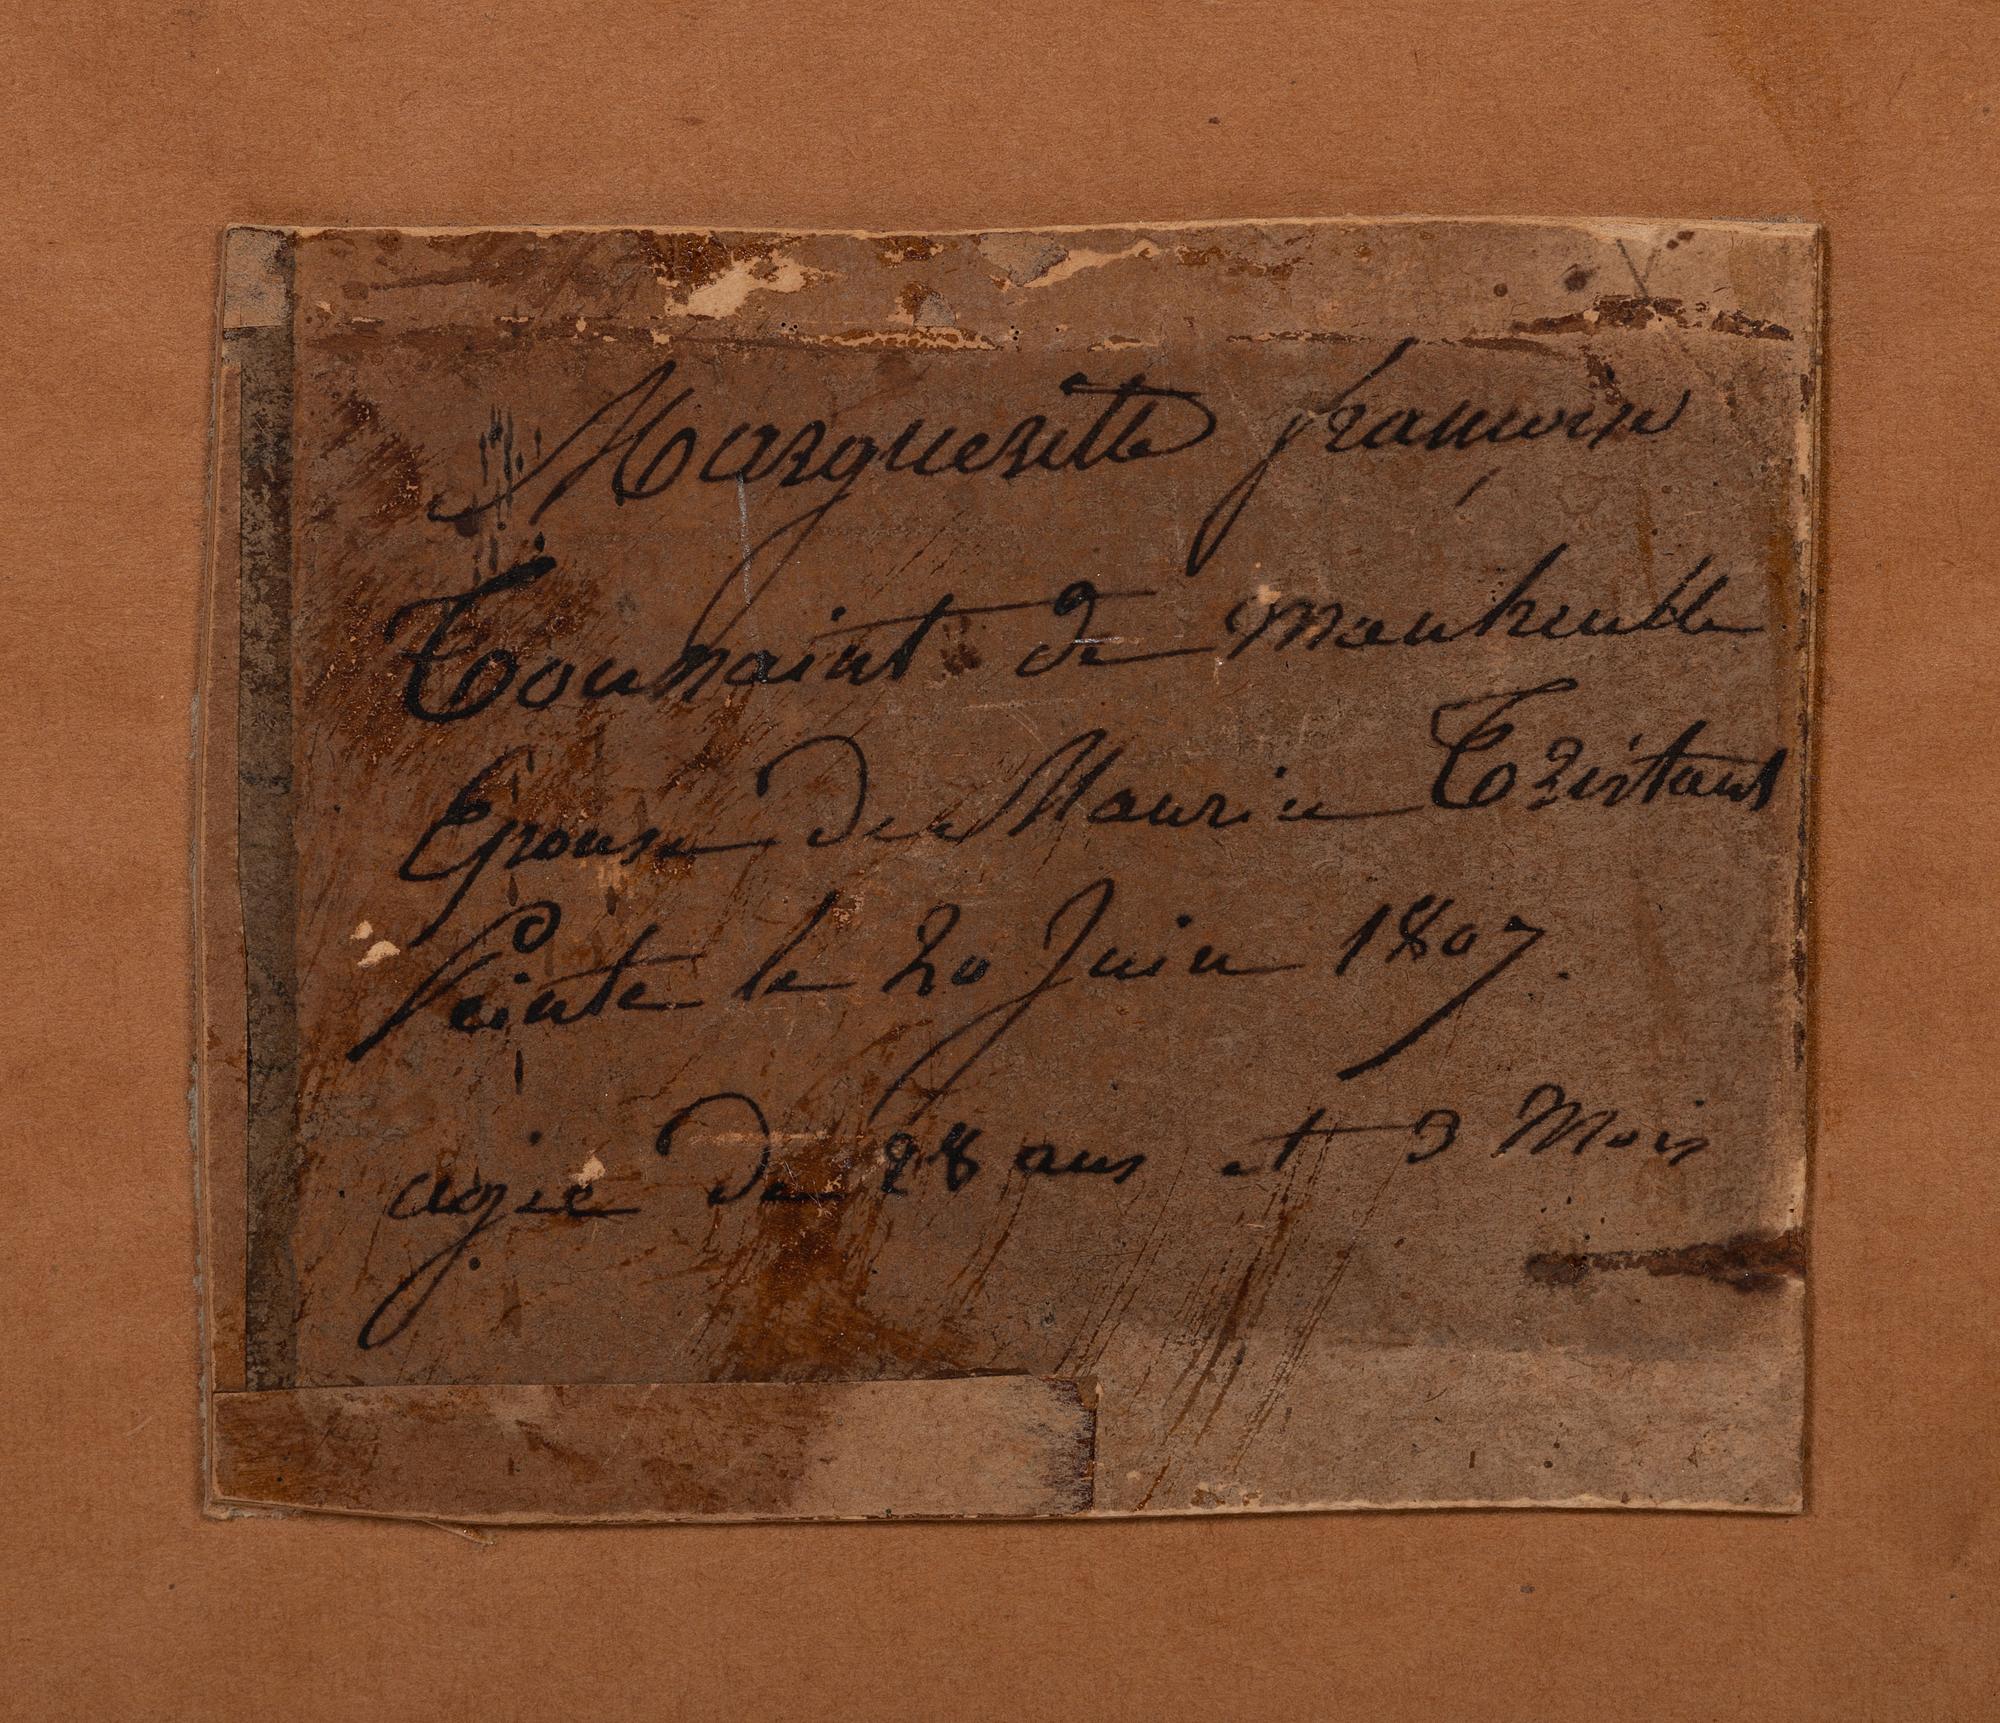 Margueritte françoise
Toussaint de Manheulle
Epouse de Maurice Tristant
Peinte le 20 Juin 1807.
agée de 28 ans et 3 Mois